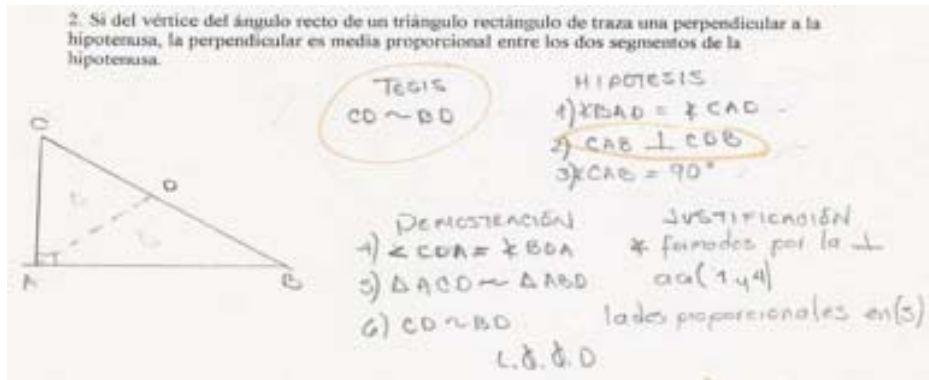 2. Si del vértice del ángulo recto de un triángulo rectángulo de traza una perpendicular a la
hipotenusa, la perpendicular es media proporcional entre los dos segmentos de la
hipotenusa.
TESIS
CD ~ BD
HIPOTESIS
1) ∢BAD = ∢ CAD
2) CAB ⊥ CDB
3) ∢CAB = 90°
C
D
A
B
DEMOSTRACIÓN
JUSTIFICACIÓN
4) ∢ CDA = ∢ BDA
∢ formados por la ⊥
5) △ ACD ~ △ ABD
aa (1 y 4)
6) CD ~ BD
lados proporcionales en (5)
L.Q.Q.D